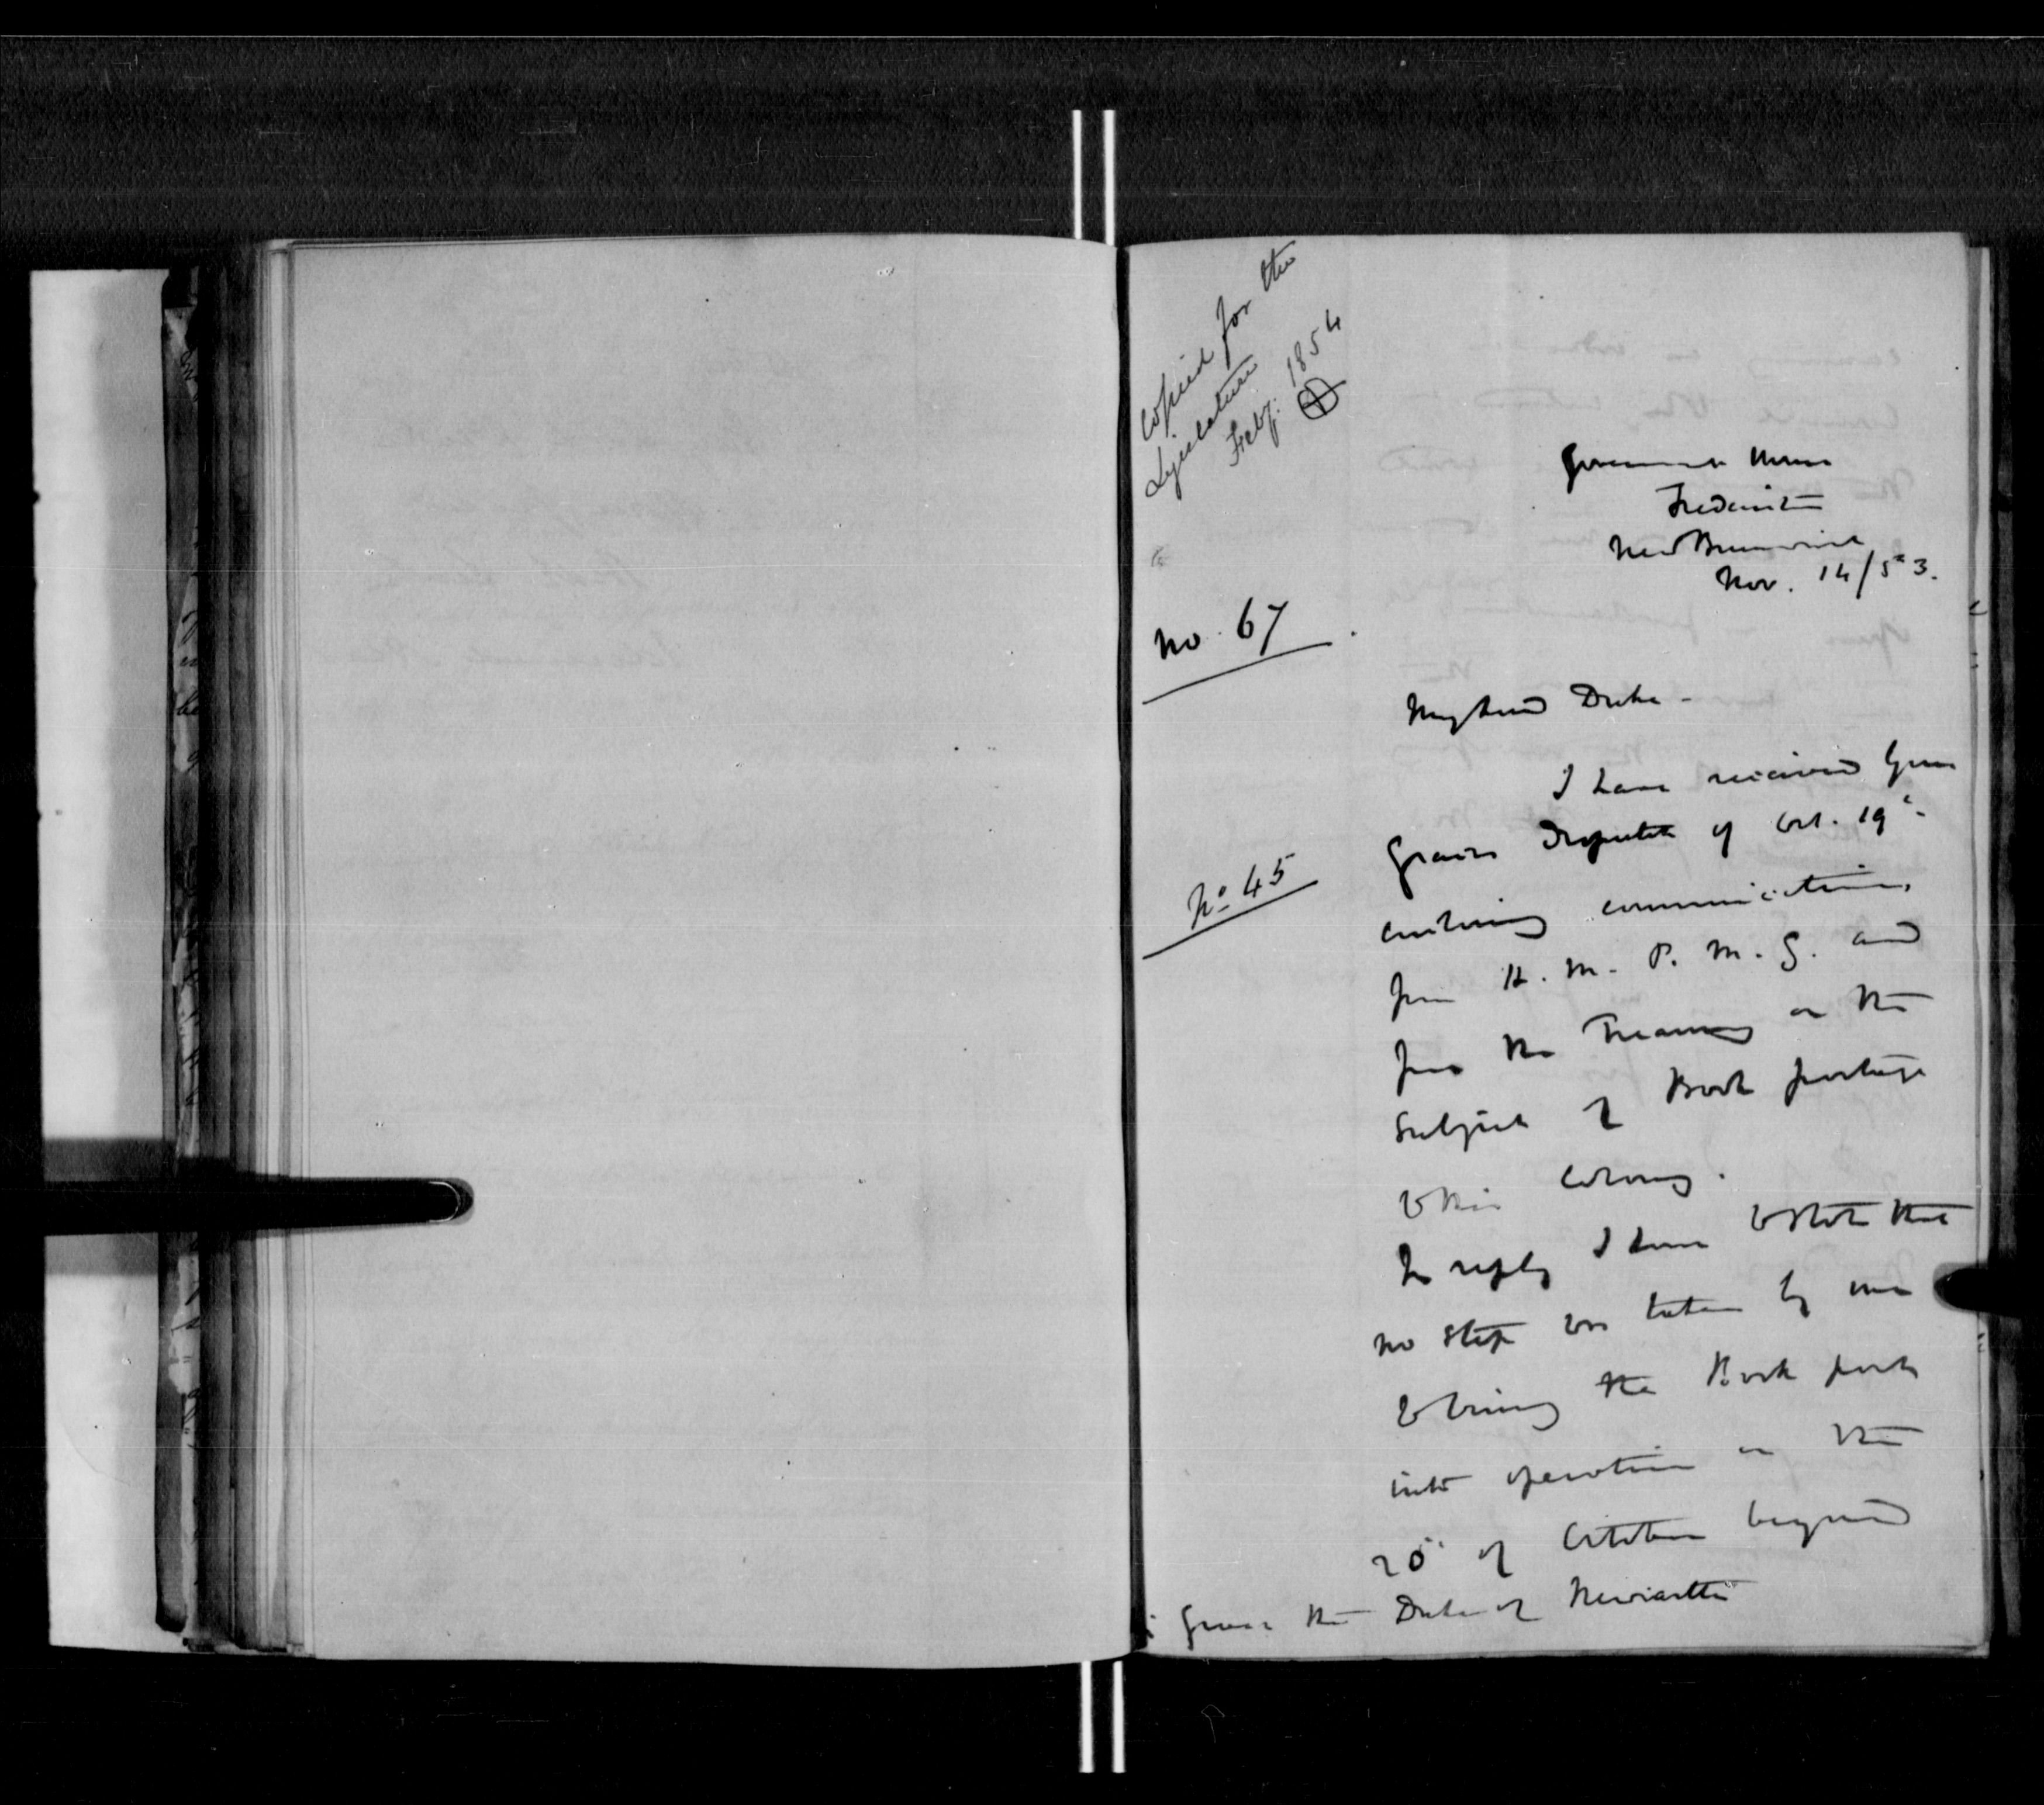 Copied for the
Legislature
Feby. 1854
Government House
Fredericton
New Brunswick
Nov. 14/53.
No. 67
My Lord Duke -
I have received Your
Graces Despatch of Oct. 19th
No. 45
enclosing communications
from H. M. P. M. G. and
from the Treasury on the
subject of Book postage
to this Colony.
In reply I have to state that
no step was taken by me
to bring the Book post
into operation in the
20th of October beyond
Grace the Duke of Newcastle